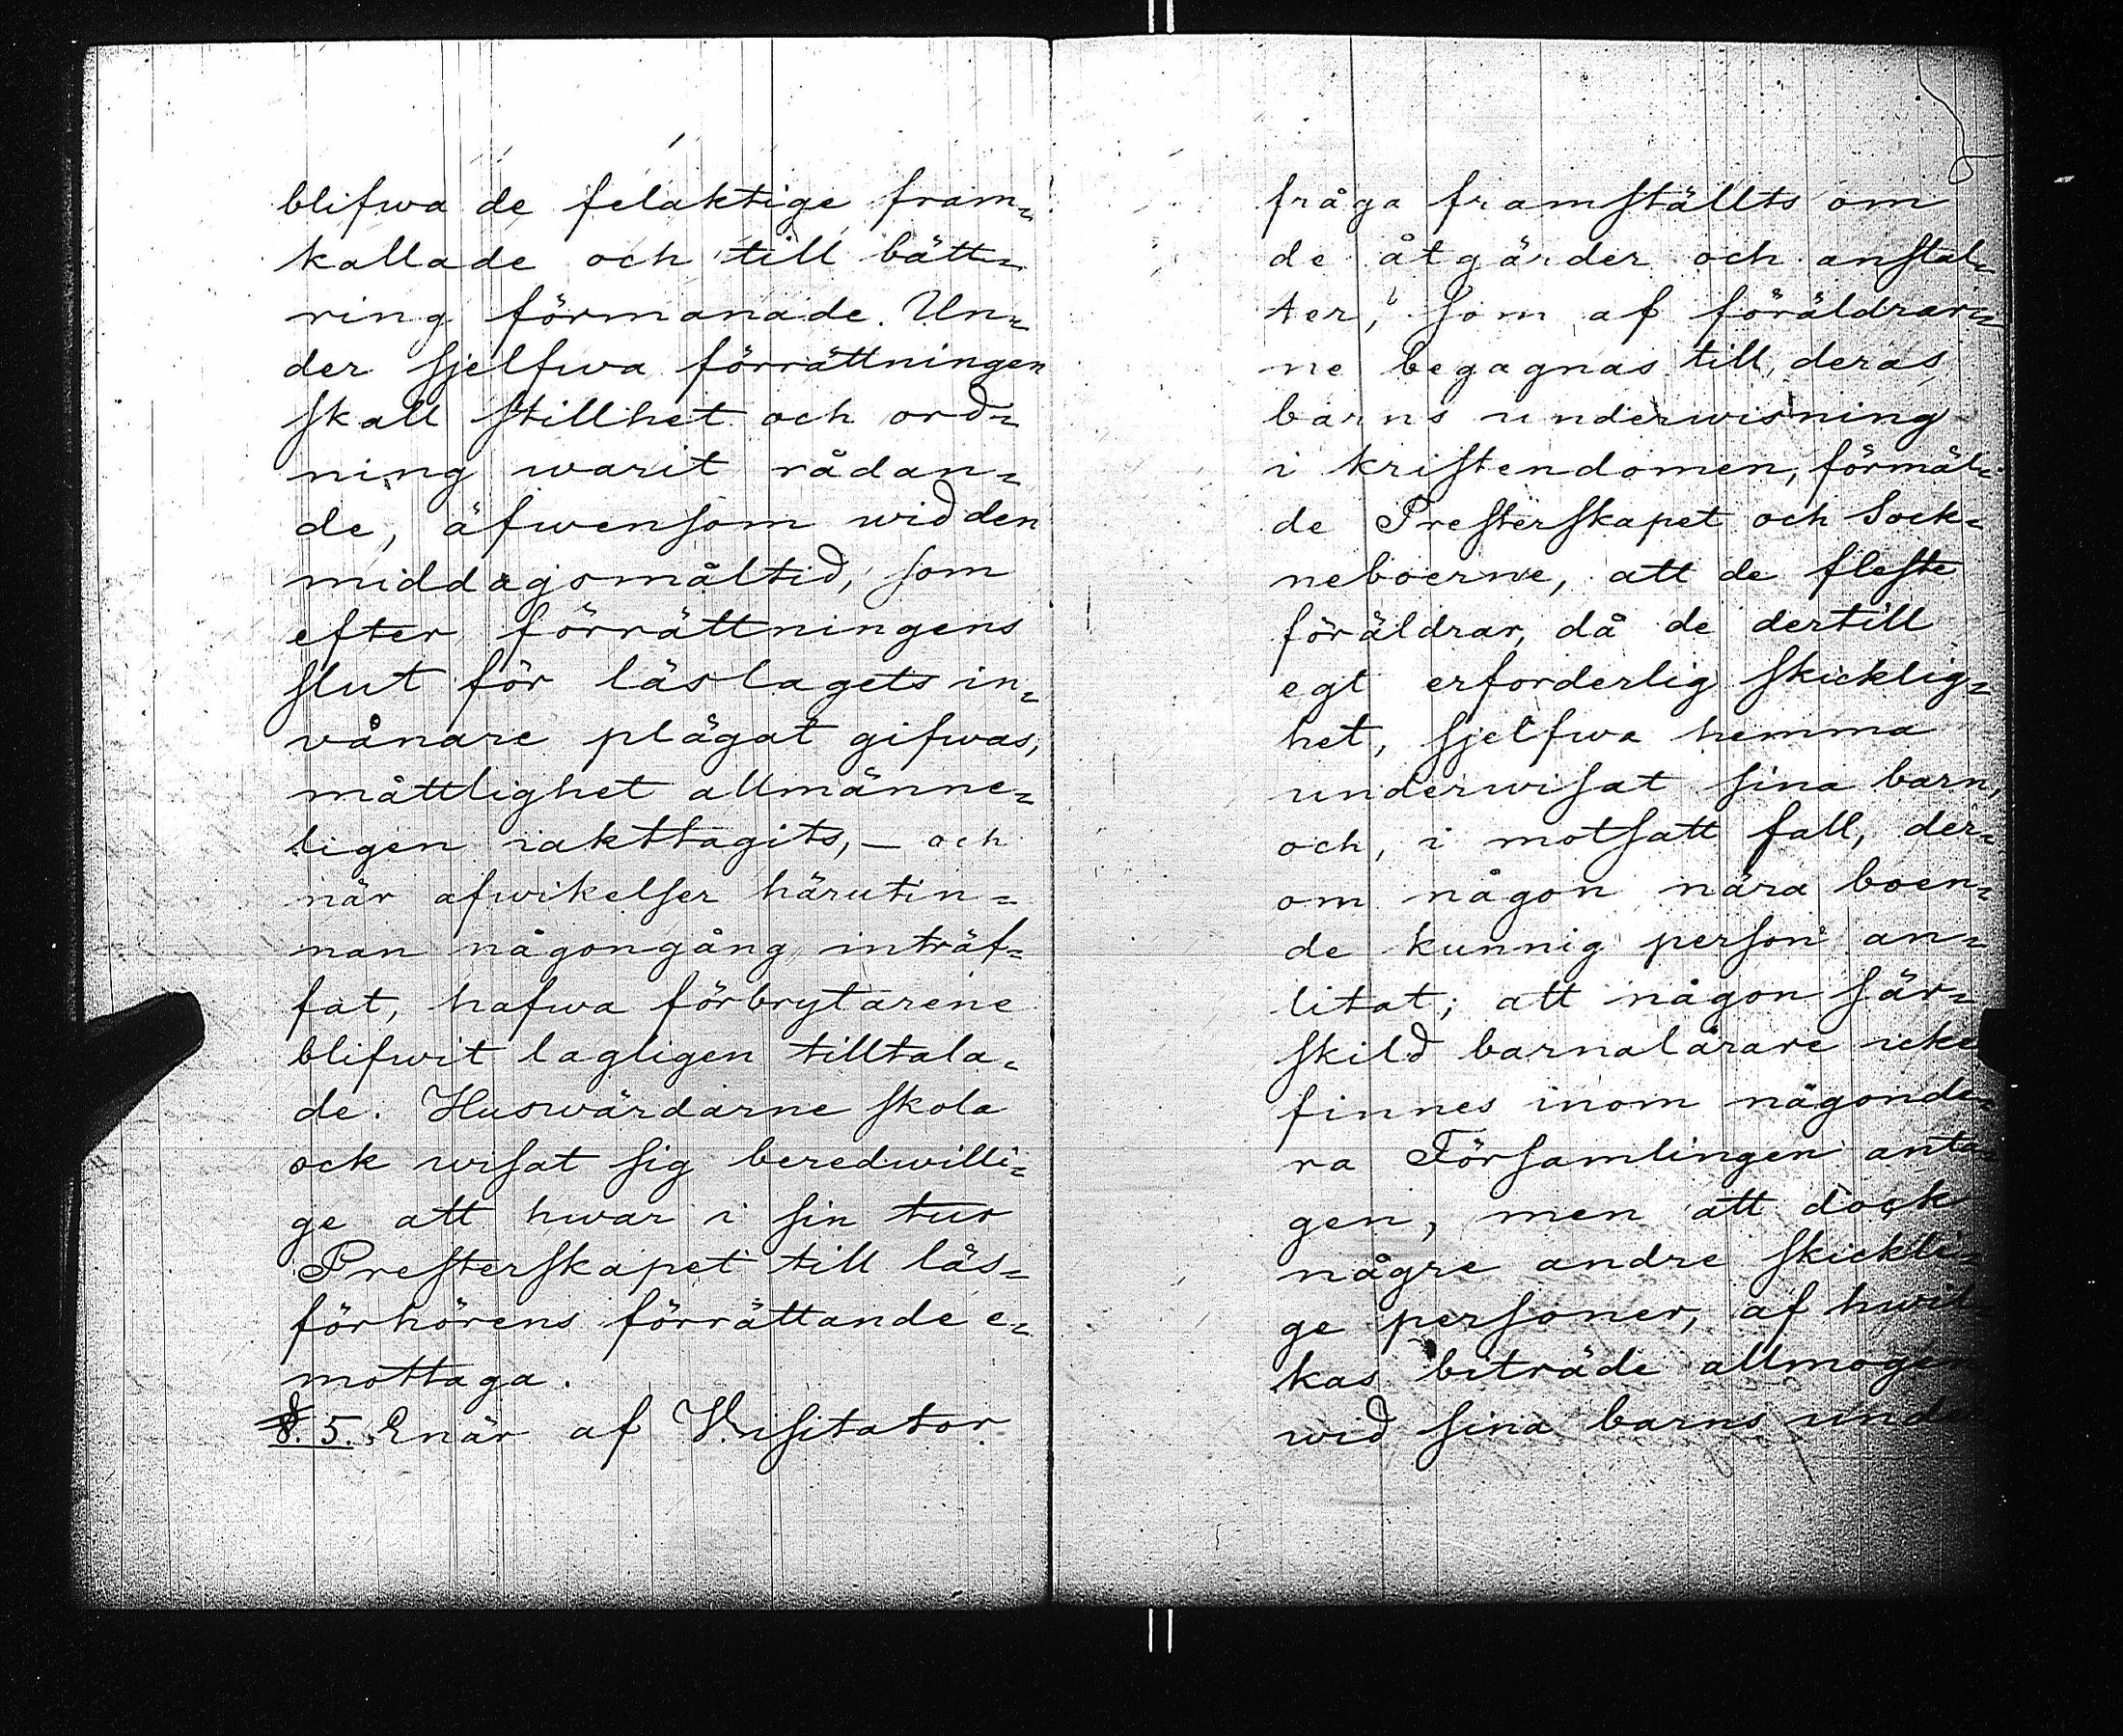 blifwa de felaktige fram=
kallade och till bätt=
ring förmanade. Un=
der sjelfwa förrättningen
skall stillhet och ord=
ning warit rådan=
de, äfwensom wid den
middagsmåltid, som
efter förrättningens
slut för läslagets in=
vånare plägat gifwas,
måttlighet allmänne=
ligen iakttagits, – och
när afwikelser härutin=
nan någongång inträf=
fat, hafwa förbrytarene
blifwit lagligen tilltala=
de. Huswärdarne skola
ock wisat sig beredwilli=
ge att hwar i sin tur
Presterskapet till läs=
förhörens förrättande e=
mottaga.
§. 5. Enär af Visitator
fråga framställts om
de åtgärder och anstal=
ter, som af föräldrar=
ne begagnas till deras
barns underwisning
i kristendomen, förmäl=
de Presterskapet och Sock=
neboerne, att de fleste
föräldrar, då de dertill
egt erforderlig skicklig=
het, sjelfwa hemma
underwisat sina barn,
och, i motsatt fall, der=
om någon nära boen=
de kunnig person an=
litat; att någon sär=
skild barnalärare icke
finnes inom någonde=
ra Församlingen anta=
gen, men att dock
någre andre skickli=
ge personer, af hwil=
kas biträde allmogen
wid sina barns under